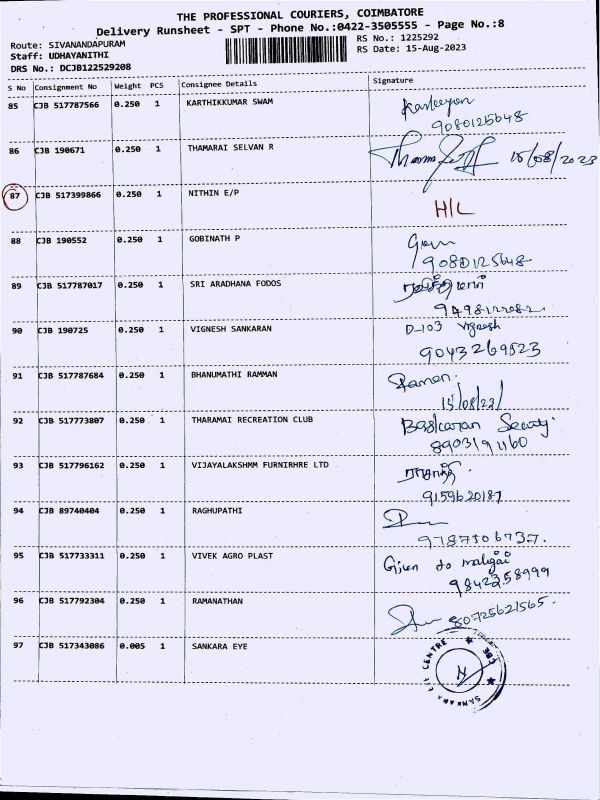 THE PROFESSIONAL COURIERS, COIMBATORE
Delivery Runsheet - SPT - Phone No.:0422-3505555 - Page No.:8
Route: SIVANANDAPURAM
RS No.: 1225292
Staff: UDHAYANITHI
RS Date: 15-Aug-2023
DRS No.: DCJB122529208
S No Consignment No Weight PCS Consignee Details Signature
85 CJB 517787566 0.250 1 KARTHIKKUMAR SWAM
9080125648
86 CJB 190671 0.250 1 THAMARAI SELVAN R
15/08/2023
87 CJB 517399866 0.250 1 NITHIN E/P
H/L
88 CJB 190552 0.250 1 GOBINATH P
9080125648
89 CJB 517787017 0.250 1 SRI ARADHANA FODOS
90 CJB 190725 0.250 1 VIGNESH SANKARAN
D-103 Vignesh
9043269523
91 CJB 517787684 0.250 1 BHANUMATHI RAMMAN
Raman.
15/08/23/
92 CJB 517773807 0.250 1 THARAMAI RECREATION CLUB
Baskaran Security
8903191160
93 CJB 517796162 0.250 1 VIJAYALAKSHMM FURNIRHRE LTD
9159620187
94 CJB 89740404 0.250 1 RAGHUPATHI
9787506737.
95 CJB 517733311 0.250 1 VIVEK AGRO PLAST
Given to
9842358999
96 CJB 517792304 0.250 1 RAMANATHAN
80725621565.
97 CJB 517343086 0.005 1 SANKARA EYE
SANKARA EYE CENTRE